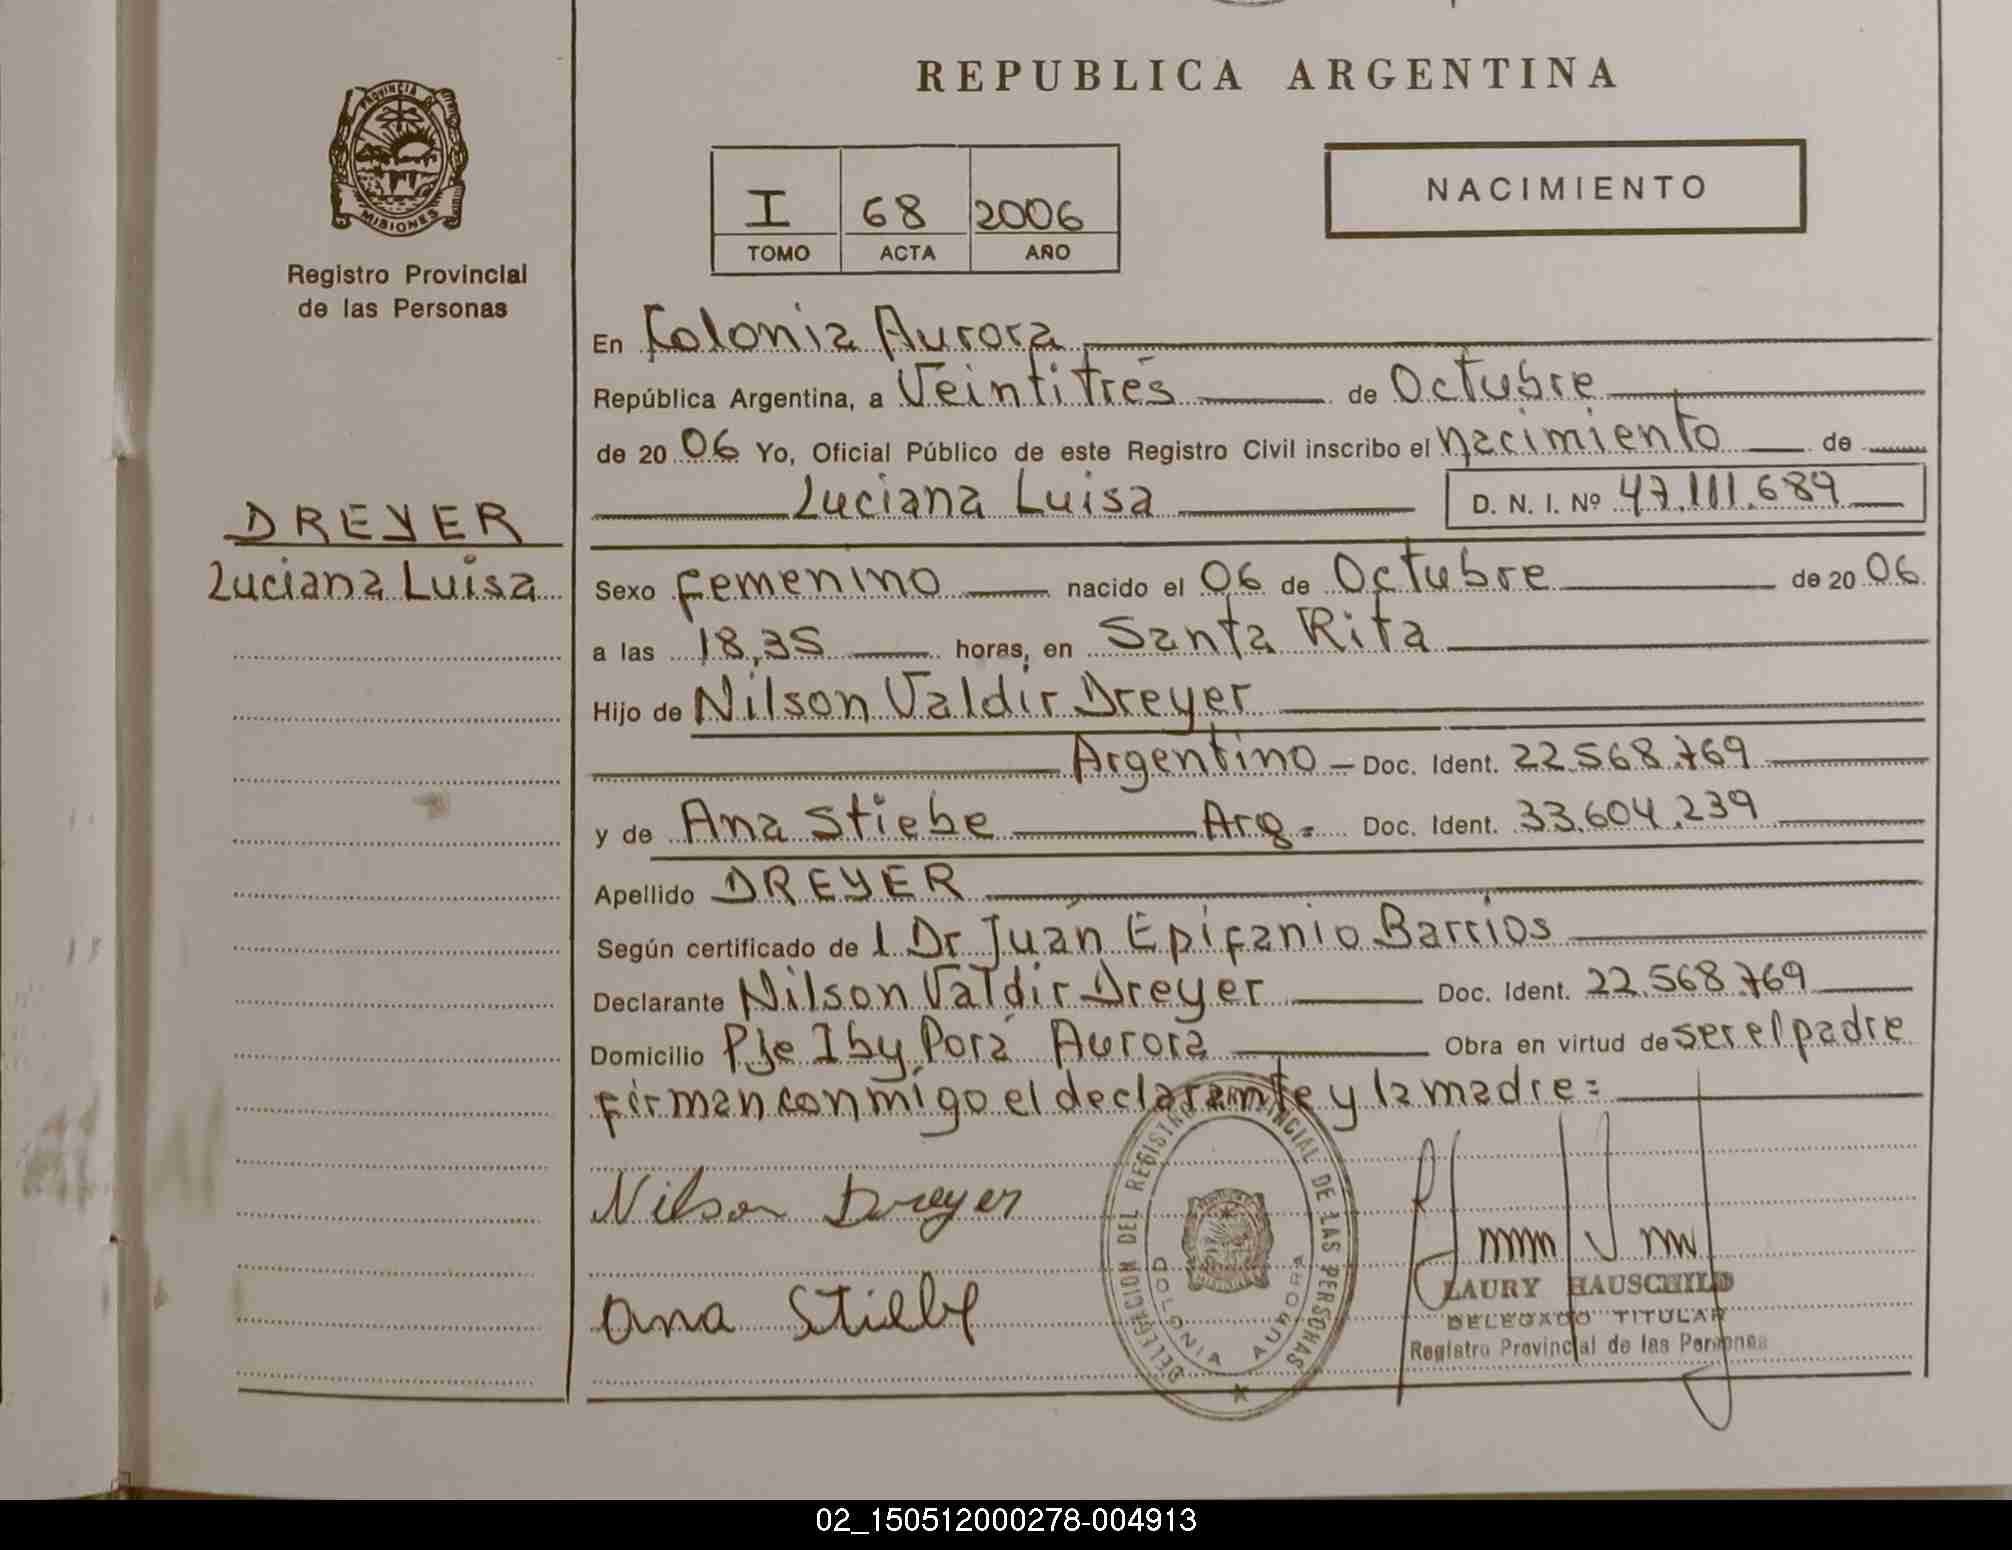 REPUBLICA ARGENTINA
PROVINCIA DE MISIONES
Registro Provincial
de las Personas
I 68 2006
TOMO ACTA AÑO
NACIMIENTO
DREYER
Luciana Luisa
En Colonia Aurora
República Argentina, a Veintitrés de Octubre
de 20 06 Yo, Oficial Público de este Registro Civil inscribo el nacimiento de
Luciana Luisa D. N. I. Nº 47.111.689
Sexo femenino nacido el 06 de Octubre de 20 06
a las 18,35 horas, en Santa Rita
Hijo de Nilson Valdir Dreyer
Argentino - Doc. Ident. 22.568.769
y de Ana Stiebe Arg. Doc. Ident. 33.604.239
Apellido DREYER
Según certificado de l Dr Juan Epifanio Barrios
Declarante Nilson Valdir Dreyer Doc. Ident. 22.568.769
Domicilio Pje Iby Porá Aurora Obra en virtud de ser el padre
firman conmigo el declarante y la madre=
Nilson Dreyer
Ana Stiebe
DELEGACION DEL REGISTRO PROVINCIAL DE LAS PERSONAS
COLONIA AURORA
LAURY HAUSCHILD
DELEGADO TITULAR
Registro Provincial de las Personas
02_150512000278-004913